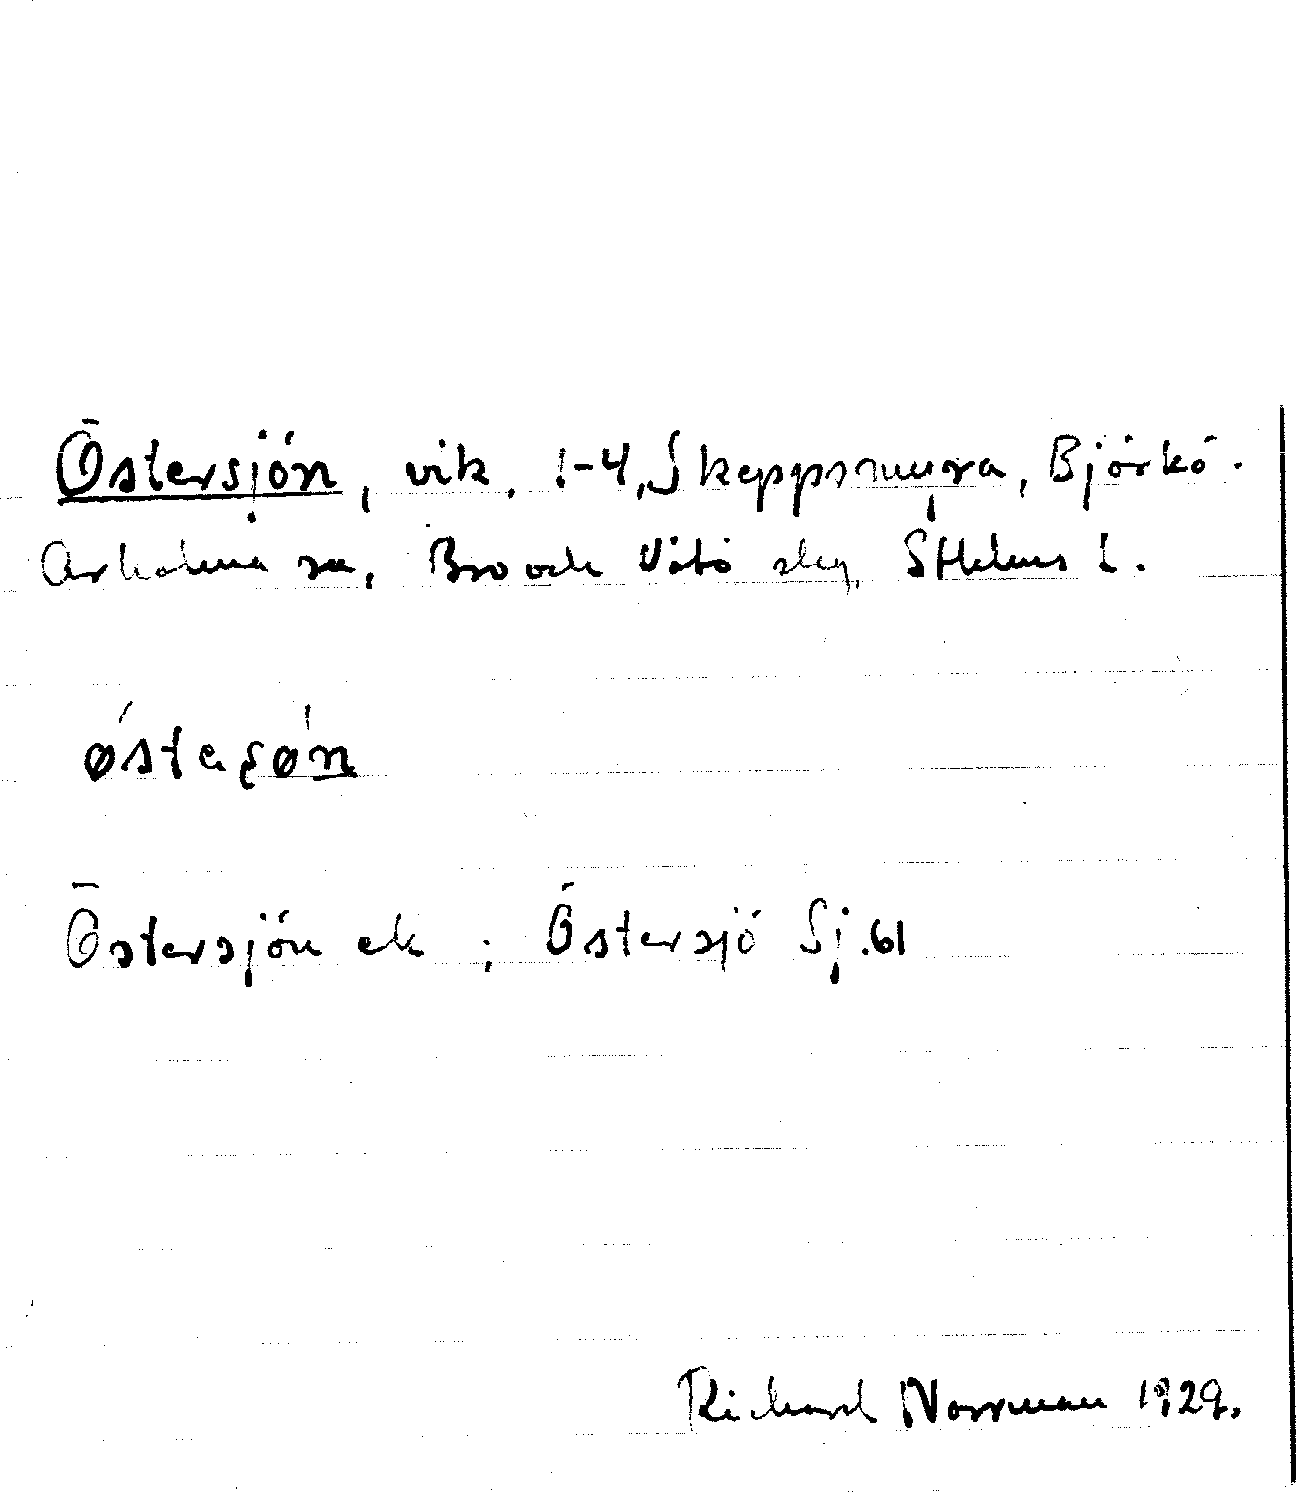 Östersjön, vik, 1-4, Skeppsmyra, Björkö-
Arholma sn, Bro och Vätö skg, Sthlms l.
östaşøn
Östersjön ek ; Östersjö Sj.61
Richard Norrman 1929.